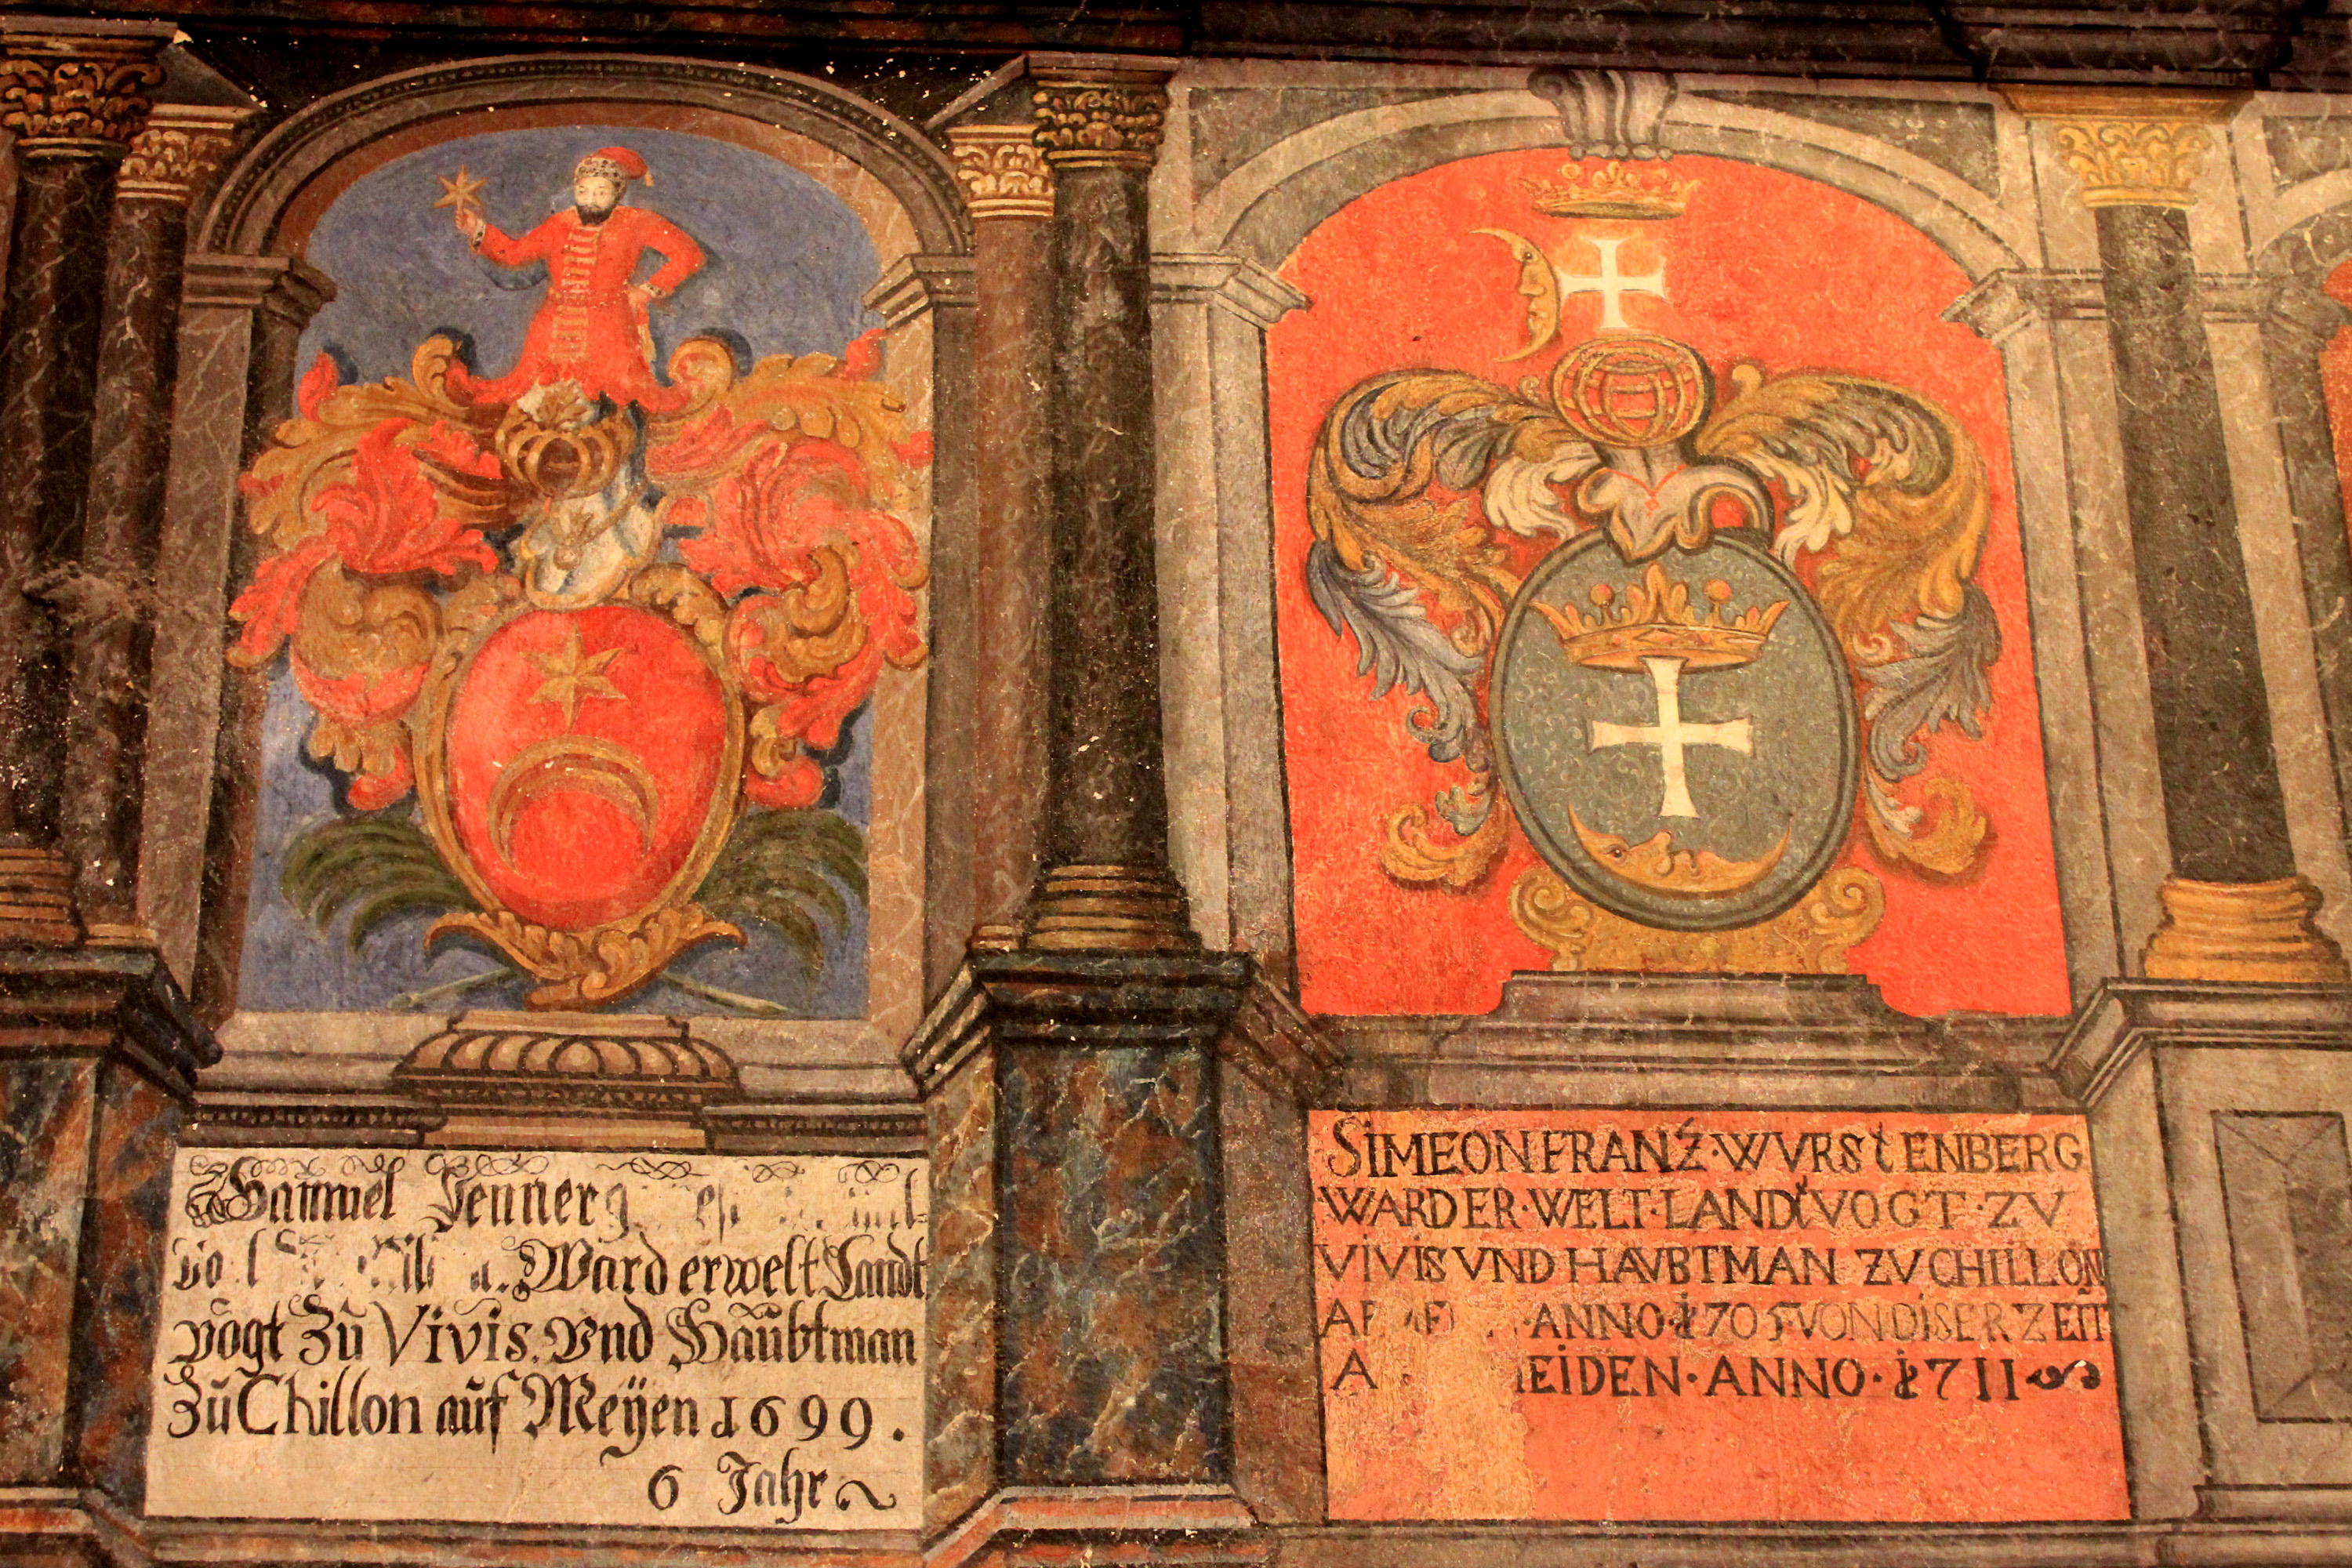 Samuel Jenner
Ward erwelt Landt
vogt Zu Vivis. Vnd Haubtman
Zu Chillon auf Meÿen 1699.
6 Jahr
SIMEON FRANZ · WVRStENBERG
WARD ER · WELT · LANDtVOGT · ZV
VIVIS VND HAVBTMAN ZV CHILLON
ANNO · 1705 VON DISER ZEIT
ANNO · 1711